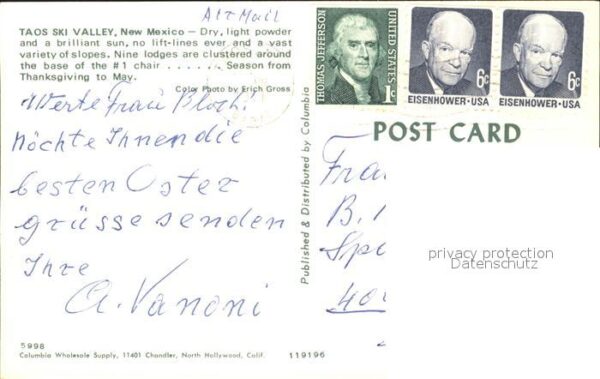 Air Mail
TAOS SKI VALLEY, New Mexico — Dry, light powder
and a brilliant sun, no lift-lines ever and a vast
variety of slopes. Nine lodges are clustered around
the base of the #1 chair . . . . . Season from
Thanksgiving to May.
Color Photo by Erich Gross
Werte Frau Bloch!
Möchte Ihnen die
besten Oster
grüsse senden
Ihre
A. Vanoni
5998
Columbia Wholesale Supply, 11401 Chandler, North Hollywood, Calif.
119196
Published & Distributed by Columbia
THOMAS JEFFERSON
UNITED STATES
1c
6c
EISENHOWER·USA
6c
EISENHOWER·USA
POST CARD
Fra
B.
Spe
privacy protection
Datenschutz